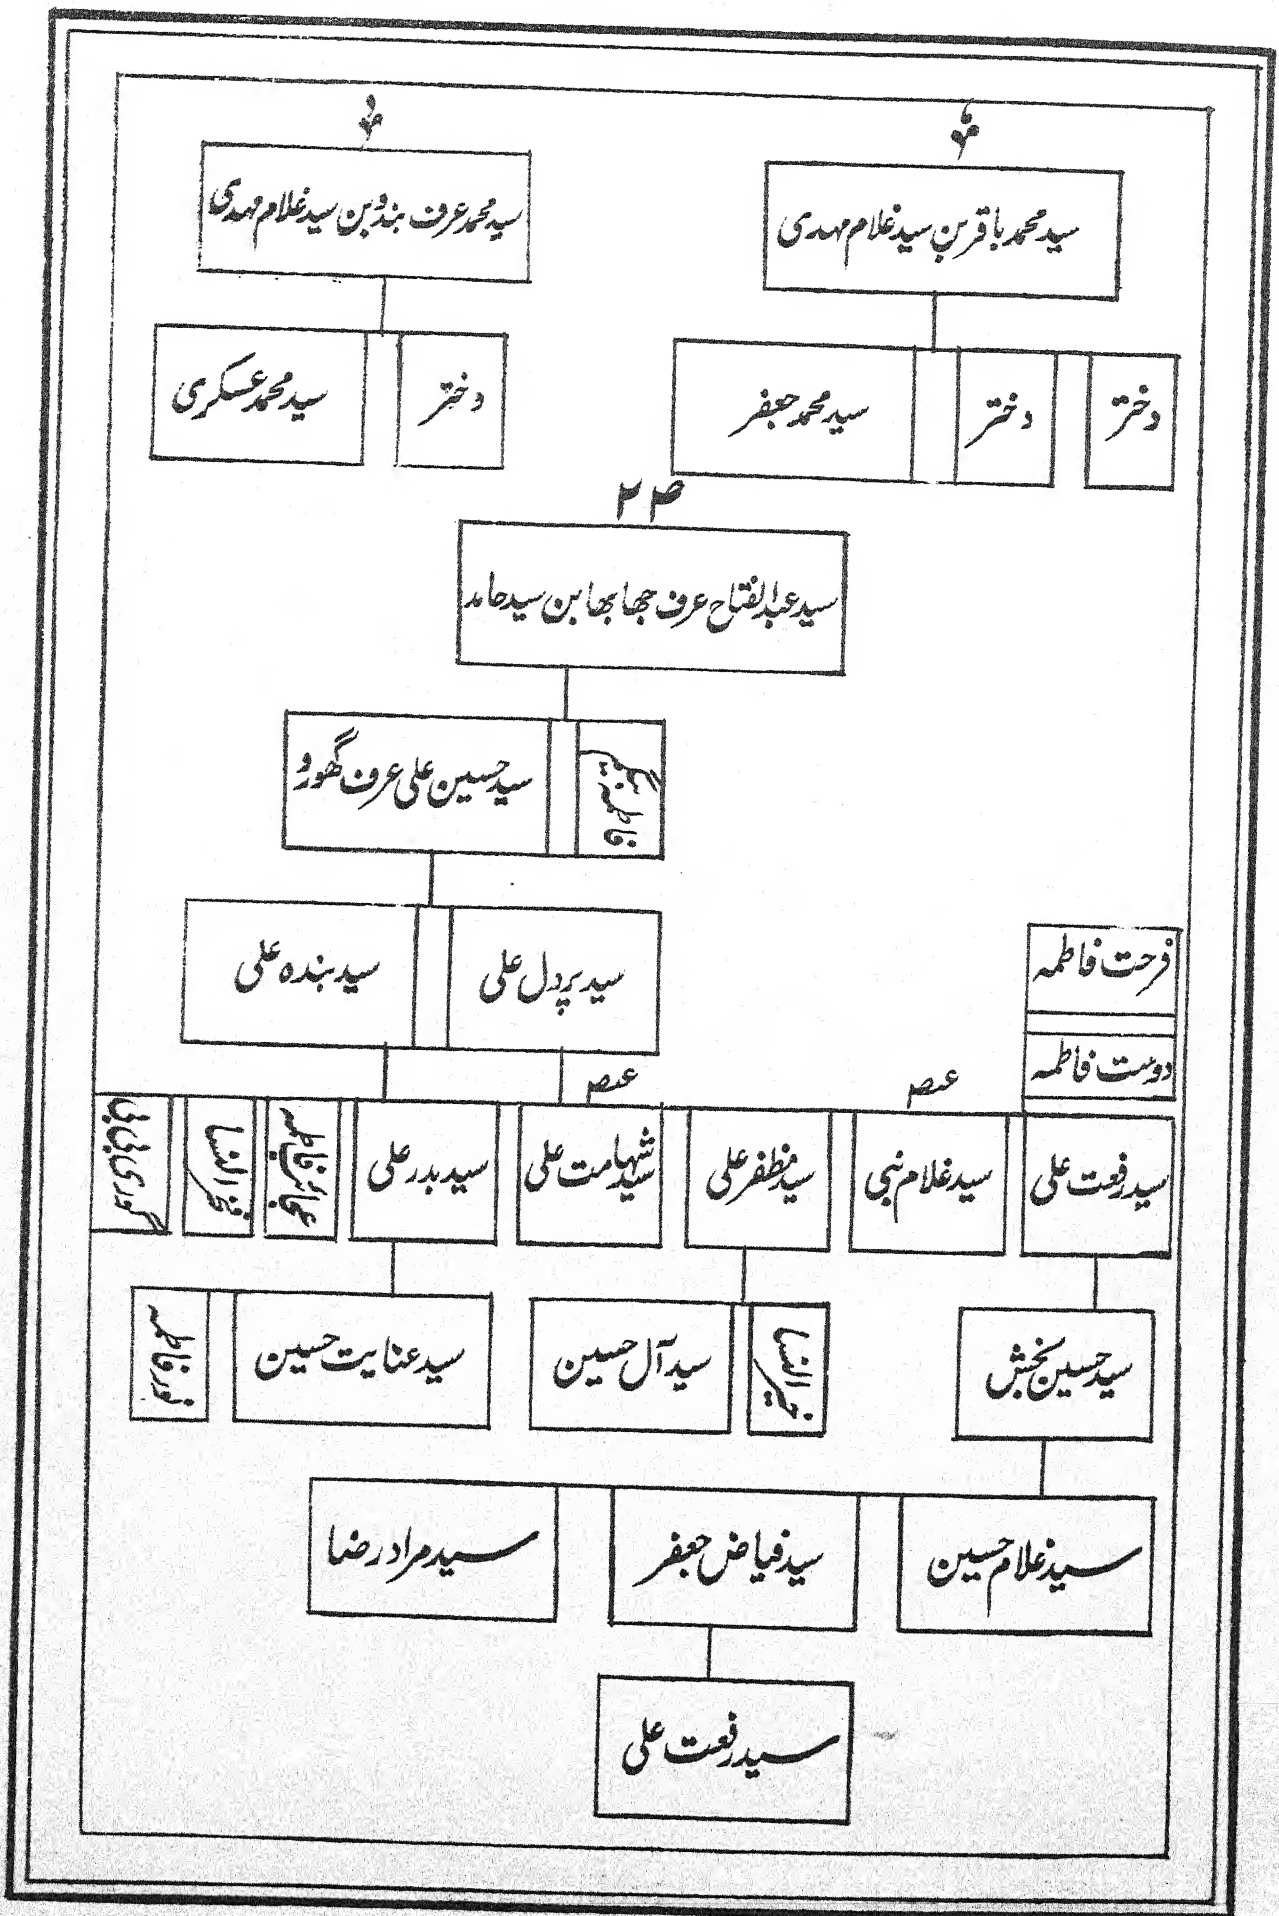 سید محمد باقر بن سید غلام مہدی
سید محمد عرف بندو بن سید غلام مہدی
دختر
دختر
سید محمد جعفر
دختر
سید محمد عسکری
ص ۲۴
سید عبدالفتاح عرف جھابھا بن سید حامد
فاطمہ بیگم
سید حسین علی عرف گھورو
سید پردل علی
سید بندہ علی
فرحت فاطمہ
دوست فاطمہ
عصہ
عصہ
سید رفعت علی
سید غلام نبی
سید مظفر علی
سید شہامت علی
سید بدر علی
فاطمہ
فخر النسا
گوری بی بی
سید حسین بخش
خیر النسا
سید آل حسین
سید عنایت حسین
نور فاطمہ
سید غلام حسین
سید فیاض جعفر
سید مراد رضا
سید رفعت علی